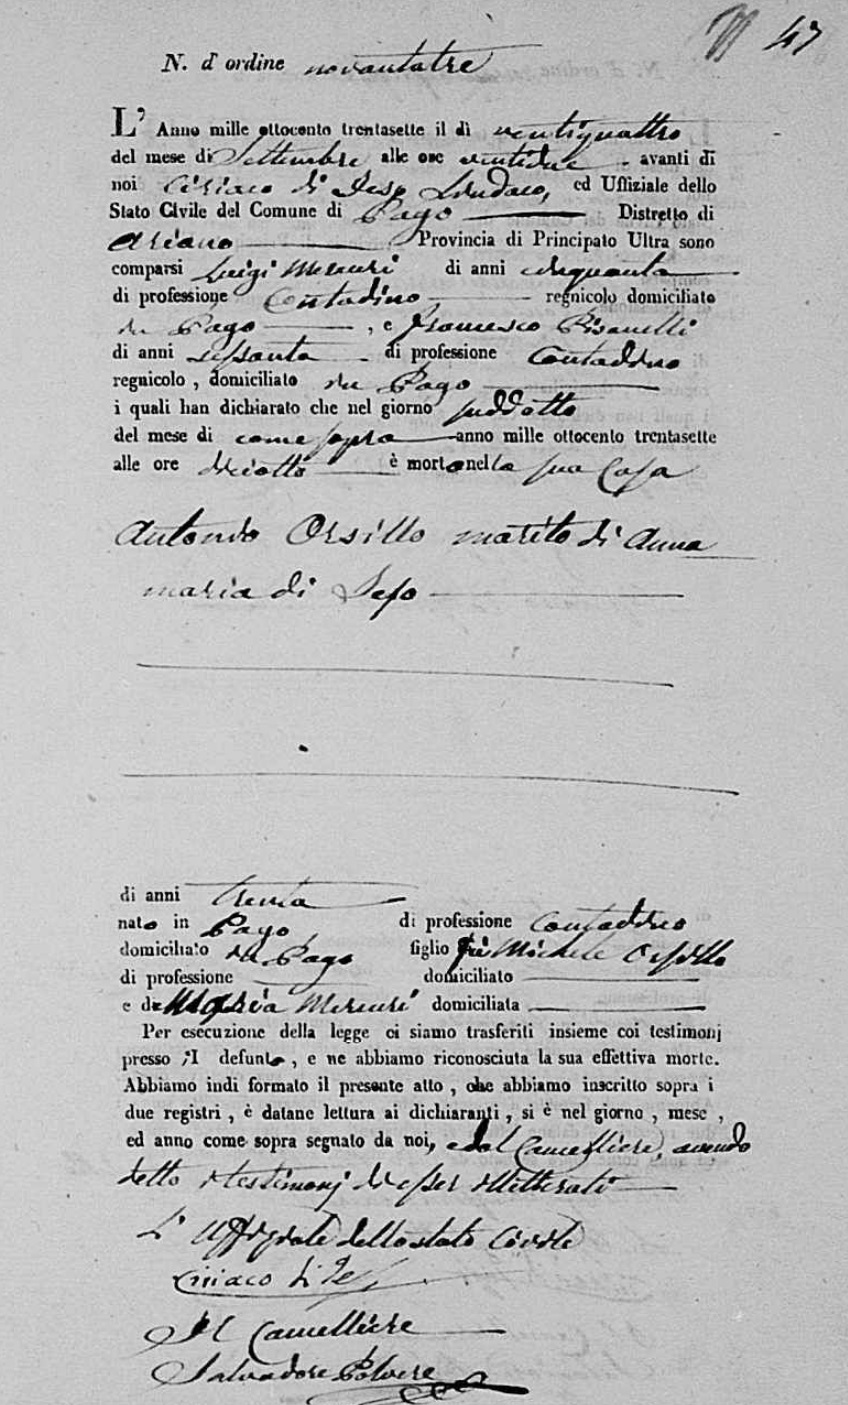 47
N. d'ordine novantatre
L' Anno mille ottocento trentasette il dì ventiquattro
del mese di Settembre alle ore ventidue avanti di
noi Ciriaco di Jeso Sindaco, ed Uffiziale dello
Stato Civile del Comune di Pago Distretto di
Ariano Provincia di Principato Ultra sono
comparsi Luigi Mercuri di anni cinquanta
di professione Contadino regnicolo domiciliato
in Pago , e Francesco Pisanelli
di anni sessanta di professione Contadino
regnicolo , domiciliato in Pago
i quali han dichiarato che nel giorno suddetto
del mese di come sopra anno mille ottocento trentasette
alle ore dieciotto è morto nella sua Casa
Antonio Orsillo marito di Anna
Maria di Jeso
di anni trenta
nato in Pago di professione Contadino
domiciliato in Pago figlio Michele Orsillo
di professione domiciliato
e di Maria Mercuri domiciliata
Per esecuzione della legge ci siamo trasferiti insieme coi testimonj
presso il defunto , e ne abbiamo riconosciuta la sua effettiva morte.
Abbiamo indi formato il presente atto , che abbiamo inscritto sopra i
due registri , è datane lettura ai dichiaranti , si è nel giorno , mese ,
ed anno come sopra segnato da noi, e dal Cancelliere, avendo
detto i testimonj di esser illetterati
L' Uffiziale dello stato Civile
Ciriaco di Jeso
Il Cancelliere
Salvadore Polvere